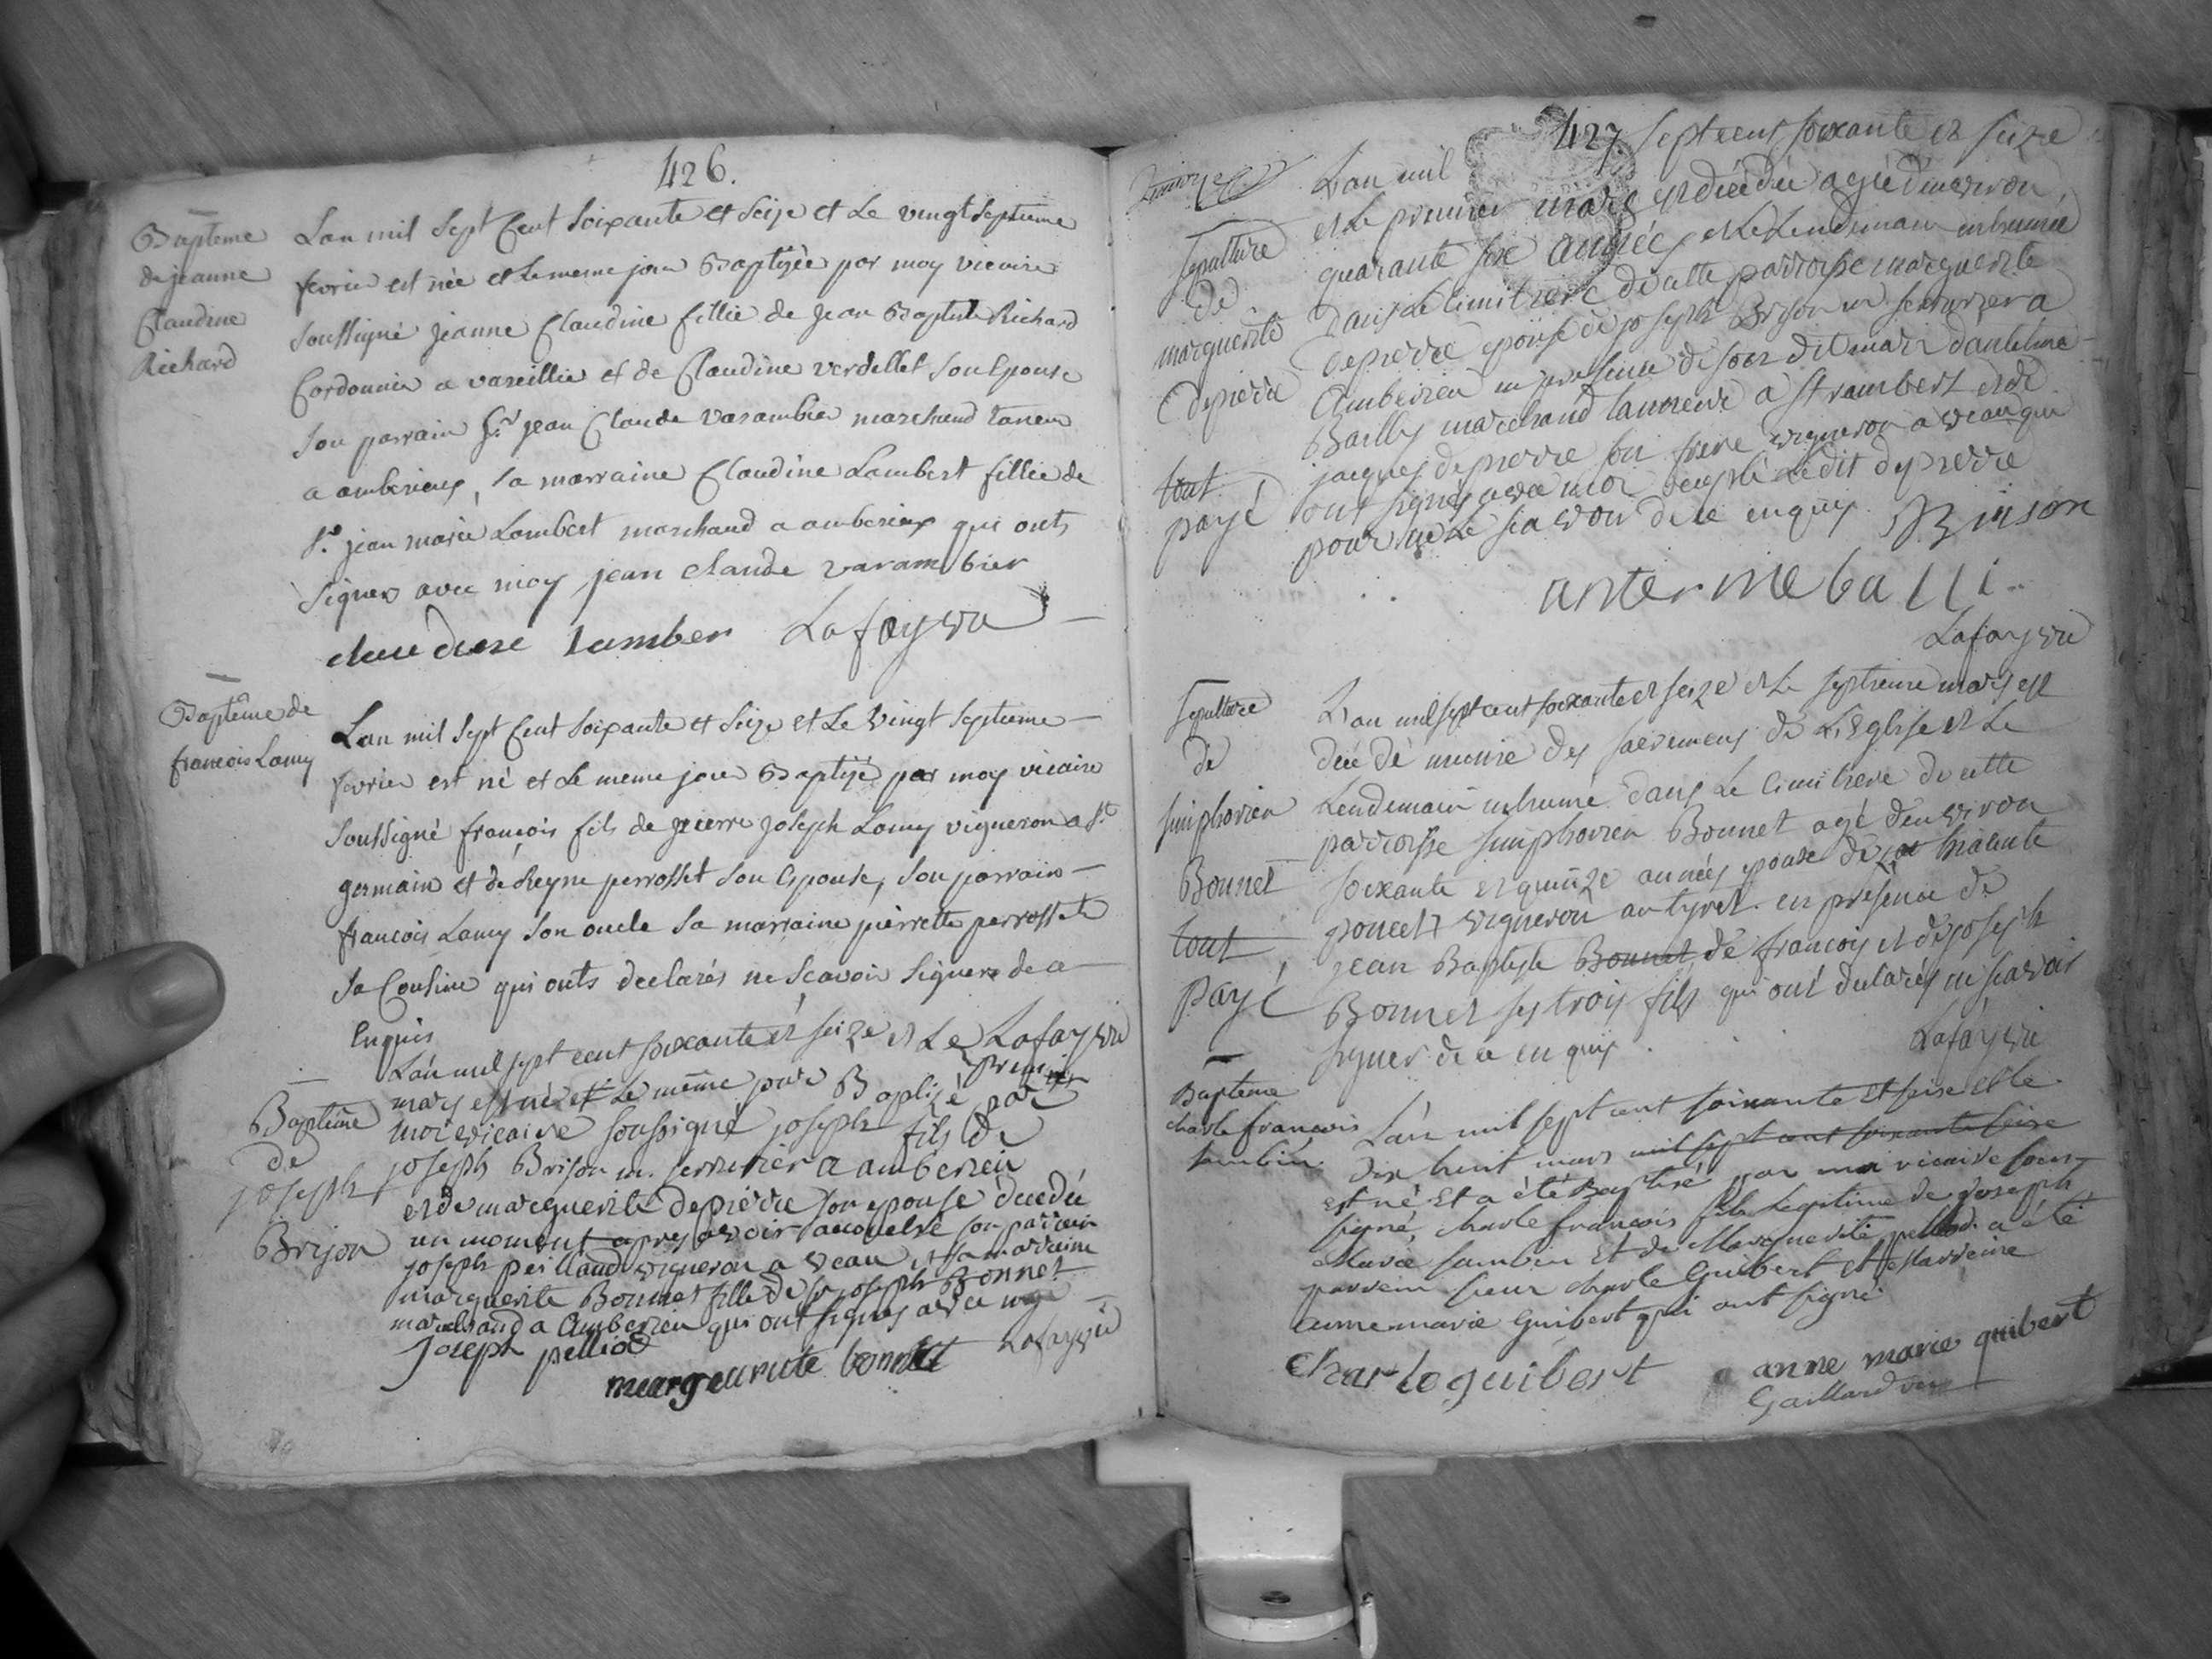 426.
Bapteme
de jeanne
Claudine
Richard
Lan mil Sept Cent Soixante et Seize et Le vingt Septieme
fevrier est née et Le meme jour Baptisée par moy vicaire
Soussigné jeanne Claudine fillie de jean Baptiste Richard
Cordonnier a vareillie et de Claudine verdellet Son Epouse
Son parrain Sr. jean Claude varambier marchand taneur
a amberieux, Sa marraine Claudine Lambert fillie de
Sr. jean marie Lambert marchand a amberieux qui onts
Signer avec moy jean claude varambier
claudine lamber Lafayviu
Baptême de
francois Lamy
Lan mil Sept Cent Soixante et Seize et Le vingt Septieme
fevrier est né et Le meme jour Baptisé par moy vicaire
Soussigné françois fils de pierre joseph Lamy vigneron a St
germain et de Reyne perrosset Son Epouse, Son parrain
francois Lamy Son oncle Sa marraine pierrette perrossete
Sa Cousine qui onts declarés ne Scavoir Signer de ce
Enquis
Lafayviu
Baptême
de
joseph
Brison
L'an mil sept cent soixante et seize et Le premier
mars est né et Le même jour Baptizé par
moi vicaire soussigné joseph fils de
joseph Brison m. serrurier a amberieu
et de marguerite depierre son epouse decedée
un moment apres avoir accouché son parrain
joseph peillaud vigneron a veau et sa marraine
marguerite Bonnet fille de sr joseph Bonnet
marchand a amberieu qui ont signes avec moy
joseph pelliod
margeurite bonnet Lafayviu
427
L'an mil septcent soixante et seize
sepulture
de
marguerite
depierre
tout
payé
et Le premier mars est decedée agée d'environ
quarante six années, et Le Lendemain inhumée
dans Le cimitiere de cette parroisse marguerite
depierre epouse de joseph Brison m. serrurier a
Amberieu en presence de son dit mari d'anthelme
Bailly marchand tanneur a St rambert et de
jacques depierre son frere vigneron a veau qui
ont signes avec moi excepté Ledit depierre
pour ne Le scavoir de ce enquis Brison
antermeballi
Lafayviu
sepulture
de
simphorien
Bonnet
tout
payé
L'an mil sept cent soixante et seize et Le septieme mars est
decedé munie des sacremens de L'Eglise et Le
Lendemain inhumé dans Le cimitiere de cette
parroisse simphorien Bonnet agé d'environ
soixante et quinze années epoux de
poncet vigneron au tyret. en presence de
jean Baptiste Bonnet de francois et de joseph
Bonnet ses trois fils qui ont declarés ne scavoir
signer de ce enquis
Lafayviu
Bapteme
charle francois
sambin
L'an mil sept cent soixante et seise et le
Dix huit mars mil sept cent soixante seise
est né et a été Baptisé par moi vicaire sous-
signé, charle francois fils legitime de joseph
Marie sambin et de Marguerite pelliod. a été
parrein sieur charle Guibert et Marreine
anne marie Guibert qui ont signé
charle guibert
anne marie guibert
Gaillard